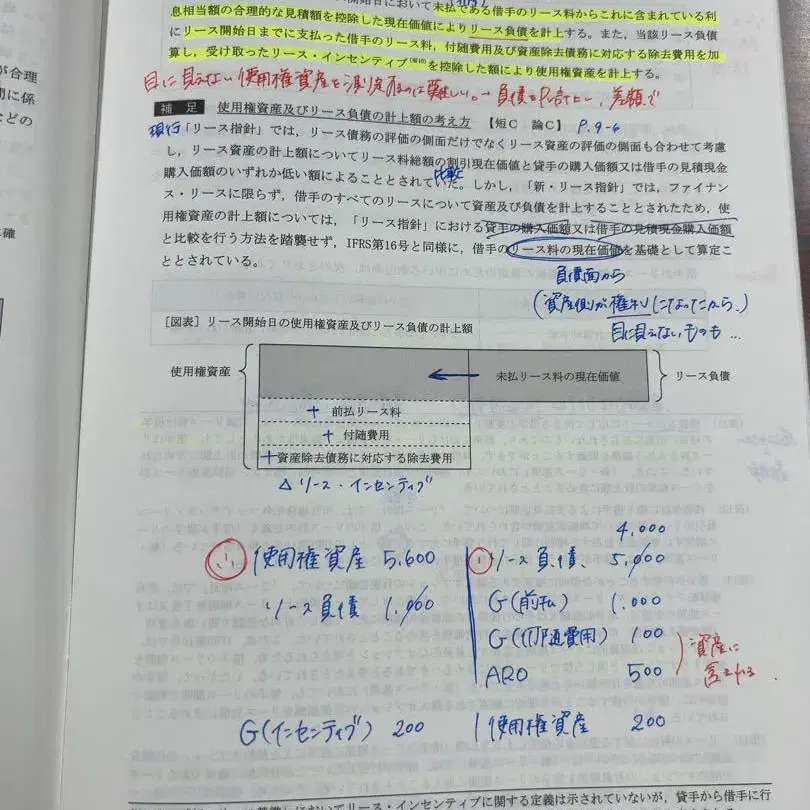 息相当額の合理的な見積額を控除した現在価値によりリース負債を計上する。また，当該リース負債
にリース開始日までに支払った借手のリース料，付随費用及び資産除去債務に対応する除去費用を加
算し，受け取ったリース・インセンティブを控除した額により使用権資産を計上する。
目に見えない使用権資産を測定するのは難しい。→負債をPで計上し、差額で
補 足 使用権資産及びリース負債の計上額の考え方 【短C 論C】 P.9-6
現行「リース指針」では，リース債務の評価の側面だけでなくリース資産の評価の側面も合わせて考慮
し，リース資産の計上額についてリース料総額の割引現在価値と貸手の購入価額又は借手の見積現金
購入価額のいずれか低い額によることとされていた。しかし，「新・リース指針」では，ファイナン
比較
ス・リースに限らず，借手のすべてのリースについて資産及び負債を計上することとされたため，使
用権資産の計上額については，「リース指針」における貸手の購入価額又は借手の見積現金購入価額
と比較を行う方法を踏襲せず，IFRS第16号と同様に，借手のリース料の現在価値を基礎として算定こ
ととされている。
負債面から
(資産側が権利になってたから、)
目に見えないもの…
［図表］リース開始日の使用権資産及びリース負債の計上額
使用権資産 未払リース料の現在価値 リース負債
＋ 前払リース料
＋ 付随費用
＋資産除去債務に対応する除去費用
△リース・インセンティブ
4,000
使用権資産 5,600 リース負債 5,000
リース負債 1,000 G(前払) 1,000
G(付随費用) 100
ARO 500
資産に
含める
G(インセンティブ) 200 使用権資産 200
においてリース・インセンティブに関する定義は示されていないが，貸手から借手に行
が合理
間に係
などの
確